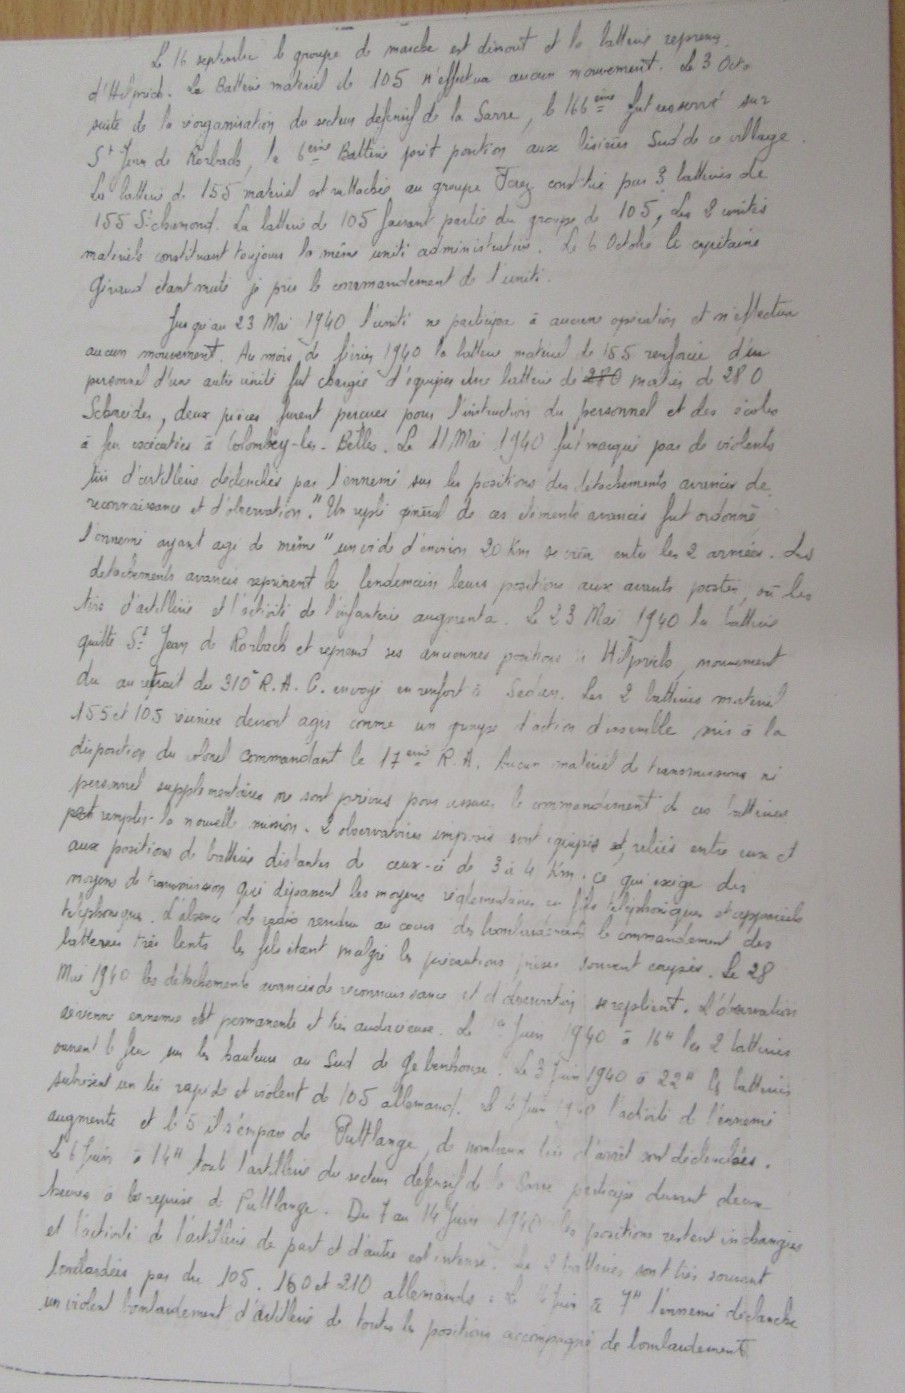 Le 16 septembre le groupe de marche est dissout et la batterie
d'Hilprich. La Batterie matériel de 105 n'effectua aucun mouvement. Le 3 Octo
suite de la réorganisation du secteur défensif de la Sarre, le 166ème fut resserré sur
St Jean de Rorbach, la 6ème Batterie prit position aux lisières Sud de ce village.
La batterie de 155 matériel est rattachée au groupe Forez constitué par 3 batteries de
155 St chamond. La batterie de 105 faisant partie du groupe de 105, Les 2 unités
matériels constituant toujours la même unité administrative. Le 6 Octobre le capitaine
Giraud étant muté je pris le commandement de l'unité.
Jusqu'au 23 Mai 1940 l'unité ne participa à aucune opération et n'effectua
aucun mouvement. Au mois de février 1940 la batterie matériel de 155 renforcée d'un
personnel d'une autre unité fut chargée d'équiper une batterie de 280 matér de 280
Schneider, deux pièces furent perçues pour l'instruction du personnel et des écoles
à feu exécutées à Colombey-les-Belles. Le 11 Mai 1940 fut marqué par de violents
tirs d'artillerie déclenchés par l'ennemi sur les positions des détachements avancés de
reconnaissance et d'observation. "Un repli général de ces éléments avancés fut ordonné
l'ennemi ayant agi de même" un vide d'environ 20 Km se créa entre les 2 armées. Les
détachements avancés reprirent le lendemain leurs positions aux avants postes, où les
tirs d'artillerie et l'activité de l'infanterie augmenta. Le 23 Mai 1940 la batterie
quitte St Jean de Rorbach et reprend ses anciennes positions à Hilprich, mouvement
du au retrait du 310e R.A.C. envoyé en renfort à Sedan. Les 2 batteries matériel
155 et 105 réunies devront agir comme un groupe d'action d'ensemble mis à la
disposition du colonel commandant le 17ème R.A. Aucun matériel de transmissions ni
personnel supplémentaires ne sont prévus pour assurer le commandement de ces batteries
remplir la nouvelle mission. 2 observatoires imposés sont équipés et, reliés entre eux et
aux positions de batterie distantes de ceux-ci de 3 à 4 Km. ce qui exige des
moyens de transmission qui dépassent les moyens réglementaires en fils téléphoniques et appareils
téléphoniques. L'absence de radio rendra au cours des bombardements le commandement des
batteries très lents les fils étant malgré les précautions prises souvent coupés. Le 28
Mai 1940 les détachements avancés de reconnaissance et d'observation se replient. L'observation
aérienne ennemie est permanente et très audacieuse. Le 1er Juin 1940 à 16H les 2 batteries
ouvrent le feu sur les hauteurs au Sud de Gebenhouse. Le 3 Juin 1940 à 22H les batteries
subissent un tir rapide et violent de 105 allemand. Le 4 Juin 1940 l'activité de l'ennemi
augmente et le 5 il s'empare de Puttlange, de nombreux tirs d'arrêt sont déclenchés.
Le 6 Juin à 14H toute l'artillerie du secteur défensif de la Sarre participe durant deux
heures à la reprise de Puttlange. Du 7 au 14 Juin 1940 les positions restent inchangées
et l'activité de l'artillerie de part et d'autre est intense. Les 2 batteries sont très souvent
bombardées par du 105. 150 et 210 allemands. Le Juin à 7H l'ennemi déclanche
un violent bombardement d'artillerie de toutes les positions accompagné de bombardement